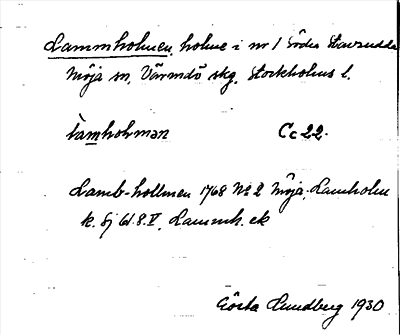 Lammholmen, holme i nr 1 Södra Stavsudda
Möja sn, Värmdö skg, Stockholms l.
lamholmən Cc 22.
Lamb-hollmen 1768 No 2 Möja, Lamholm
k. Sj 61.8.V, Lammh. ek
Gösta Lundberg 1930